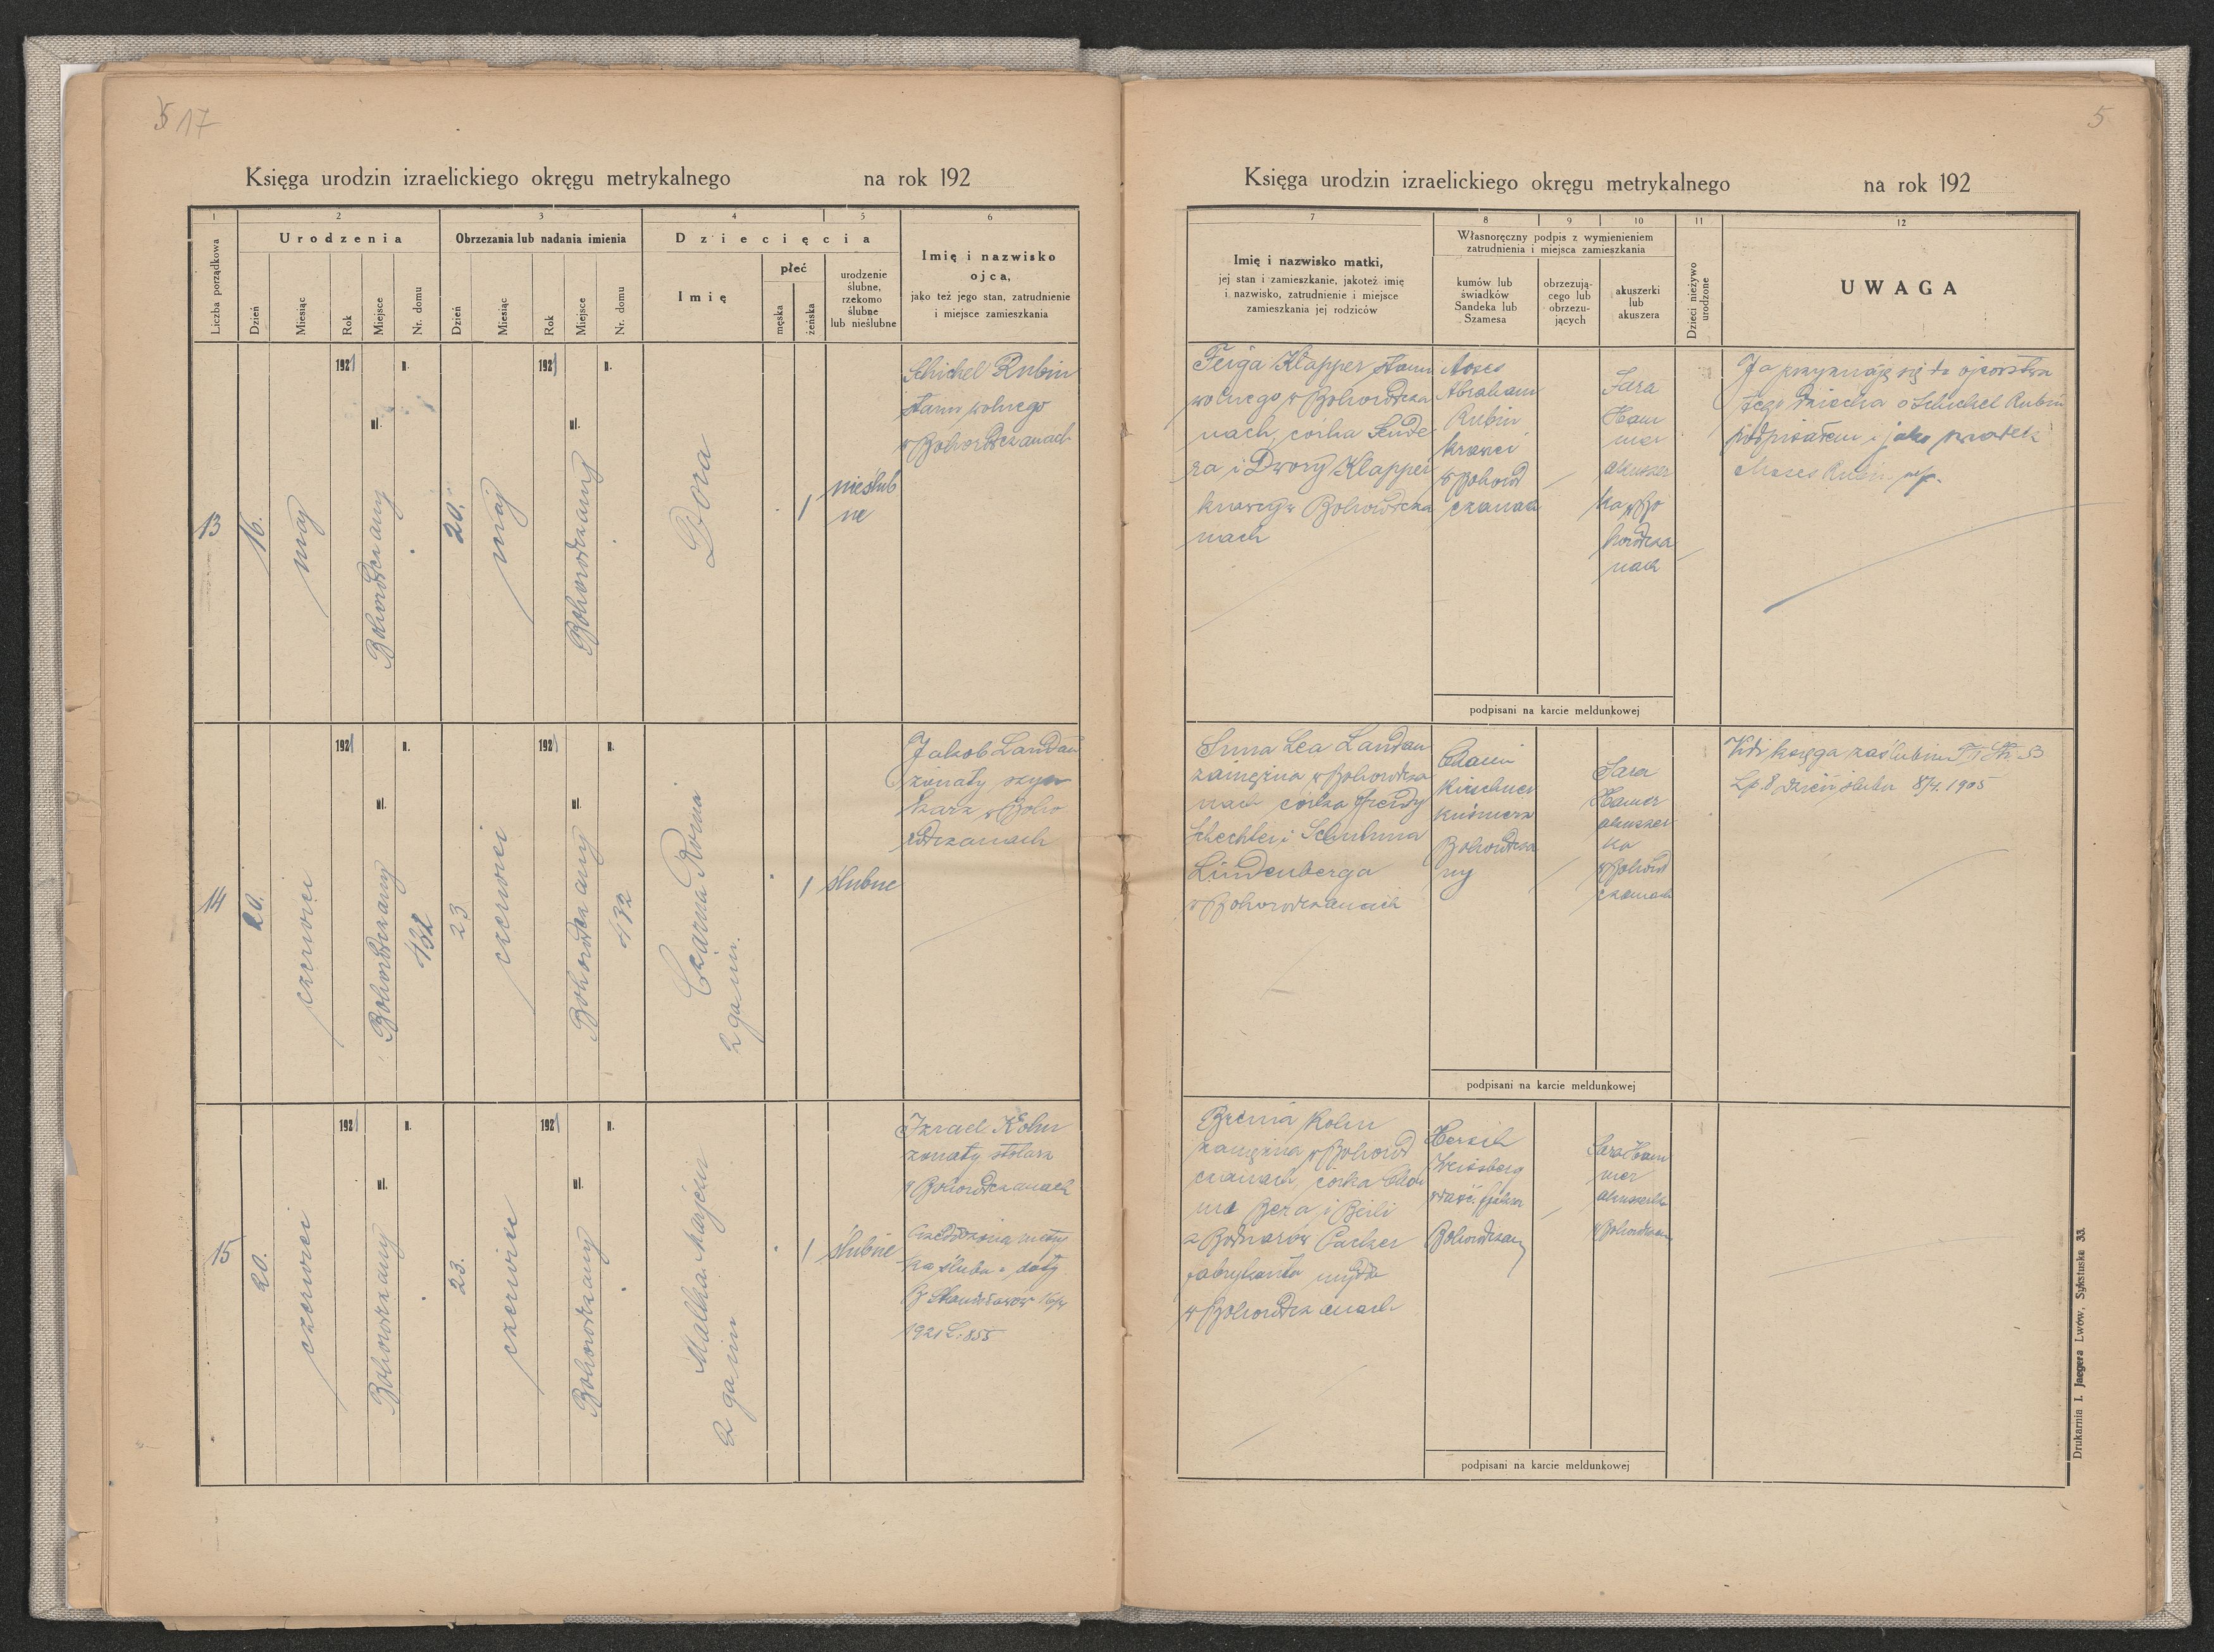 5 17
Księga urodzin izraelickiego okręgu metrykalnego na rok 192
1
2
3
4
5
6
Liczba porządkowa
Urodzenia
Obrzezania lub nadania imienia
Dziecięcia
Imię i nazwisko
ojca,
jako też jego stan, zatrudnienie
i miejsce zamieszkania
Dzień
Miesiąc
Rok
Miejsce
Nr. domu
Dzień
Miesiąc
Rok
Miejsce
Nr. domu
Imię
płeć
męska
żeńska
urodzenie
ślubne,
rzekomo
ślubne
lub nieślubne
13
16.
maj
1921
Bohorodczany
20.
maj
1921
Bohorodczany
Dora
1
nieślub
ne
Schichel Rubin
stanu wolnego
w Bohorodczanach
14
20.
czerwiec
1921
Bohorodczany
432
23
czerwiec
1921
Bohorodczany
432
Czarna Roisia
2 ga im.
1
ślubne
Jakob Landau
żonaty szyn
karz w Boho
rodczanach
15
20.
czerwiec
1921
Bohorodczany
23.
czerwiec
1921
Bohorodczany
Malka
2 ga im
1
ślubne
Izrael Kohn
żonaty stolarz
w Bohorodczanach
ślubu
Stanisławów
1921 L: 855
5
Księga urodzin izraelickiego okręgu metrykalnego na rok 192
7
8
9
10
11
12
Imię i nazwisko matki,
jej stan i zamieszkanie, jakoteż imię
i nazwisko, zatrudnienie i miejsce
zamieszkania jej rodziców
Własnoręczny podpis z wymienieniem
zatrudnienia i miejsca zamieszkania
kumów lub
świadków
Sandeka lub
Szamesa
obrzezują-
cego lub
obrzezu-
jących
akuszerki
lub
akuszera
Dzieci nieżywo
urodzone
UWAGA
Feiga Klapper stanu
wolnego w Bohorodcza
nach, córka Sende
ra i Dwory Klapper
w Bohorodcza
nach
Moses
Abraham
Rubin
krawiec
w Bohorod
czanach
Sara
Ham
mer
akuszer
ka w Bo
horodcza
nach
Ja przyznaję się do ojcostwa
tego dziecka o Schichel Rubin
podpisałem i jako świadek
Moses Rubin
podpisani na karcie meldunkowej
Suma Lea Landau
zamężna w Bohorodcza
nach córka Frendy
Schechter i Schulima
Lindenberga
w Bohorodczanach
Chaim
Kirschner
kuśnierz
Bohorodcza
ny
Sara
Hamer
akuszer
ka
w Bohorod
czanach
Vide księga zaślubin
Lp. 8 dzień ślubu 8/4. 1905
podpisani na karcie meldunkowej
Kohn
zamężna w Bohorod
czanach, córka Chai
ma i Beili
fabrykanta mydła
w Bohorodczanach
Hersch
Weissberg
Bohorodczany
Sara Ham
mer
akuszerka
w Bohorodczan
podpisani na karcie meldunkowej
Drukarnia I. Jaegera Lwów, Sykstuska 33.